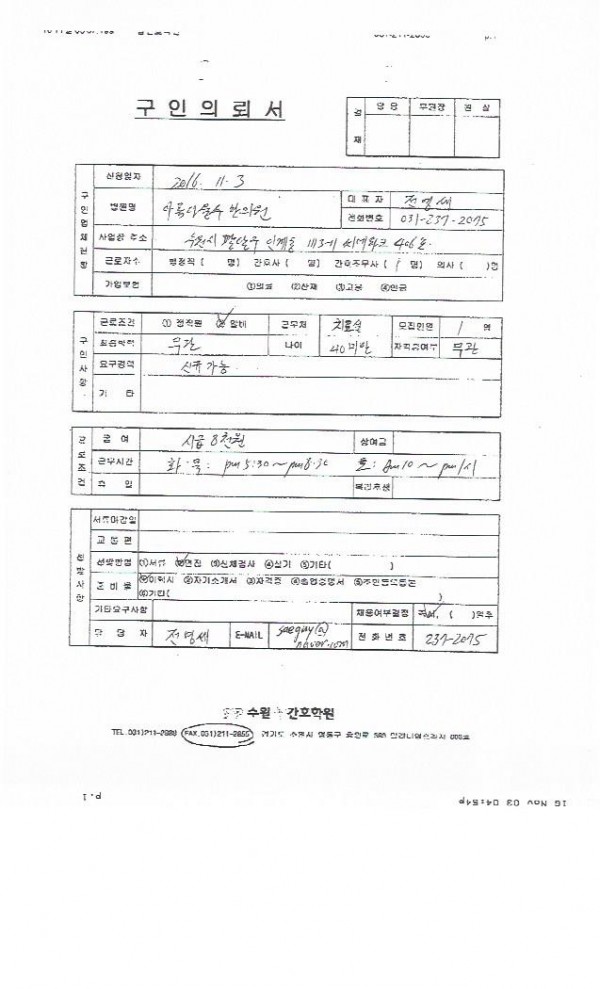 구 인 의 뢰 서
결 재
부원장 원 장
신청일자 2016. 11. 3
병원명 한의원
대 표 자 전영세
전화번호 031-237-2075
사업장 주소 수원시 팔달구 인계동 1113-1 씨네파크 406호
근로자수 행정직 ( 명) 간호사 ( 명) 간호조무사 ( 1 명) 의사 ( )명
가입보험 ①의료 ②산재 ③고용 ④연금
구 인 사 항
근로조건 ① 정직원 ② 알바 근무처 치료실 모집인원 1 명
최종학력 무관 나이 40미만 자격증여부 무관
요구경력 신규 가능
기 타
근 로 조 건
급 여 시급 8천원 상여금
근무시간 화·목: pm 5:30 ~ pm 8:30 토: Am 10 ~ pm 1시
휴 일 복리후생
서류마감일
교 통 편
선발방법 ①서류 ②면접 ③신체검사 ④실기 ⑤기타( )
준 비 물 ①이력서 ②자기소개서 ③자격증 ④졸업증명서 ⑤주민등록등본
⑥기타( )
기타요구사항 채용여부결정 즉시, ( )일후
담 당 자 전영세 E-MAIL seeguy@naver.com 전 화 번 호 237-2075
수원 간호학원
TEL. 031)211-2888 FAX. 031)211-2855
p.1
16 Nov 03 04:54p